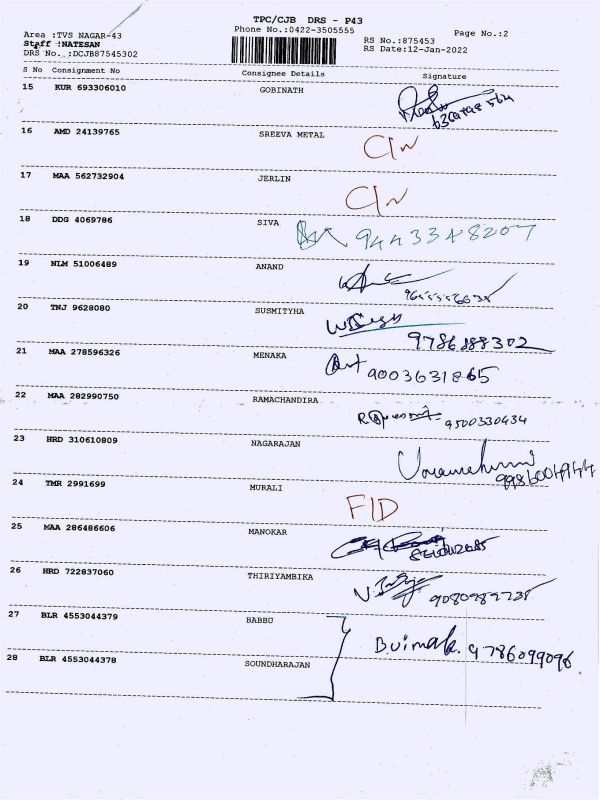 TPC/CJB DRS - P43
Area :TVS NAGAR-43 Phone No.:0422-3505555 Page No.:2
Staff :NATESAN RS No.:875453
DRS No.,:DCJB87545302 RS Date:12-Jan-2022
S No Consignment No Consignee Details Signature
15 KUR 693306010 GOBINATH
16 AMD 24139765 SREEVA METAL C/N
17 MAA 562732904 JERLIN C/N
18 DDG 4069786 SIVA 9443348207
19 NLM 51006489 ANAND
20 TNJ 9628080 SUSMITYHA
9786888302
21 MAA 278596326 MENAKA 9003631865
22 MAA 282990750 RAMACHANDIRA 9500330434
23 HRD 310610809 NAGARAJAN
24 TMR 2991699 MURALI F/D
25 MAA 286486606 MANOKAR
26 HRD 722837060 THIRIYAMBIKA
27 BLR 4553044379 BABBU
B.vimak. 9786099096
28 BLR 4553044378 SOUNDHARAJAN